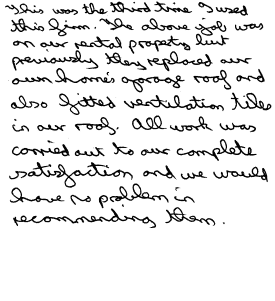 This was the third time I used
this firm. The above job was
on our rental property but
previously they replaced our
own home's garage roof and
also fitted ventilation tiles
in our roof. All work was
carried out to our complete
satisfaction and we would
have no problem in
recommending them.